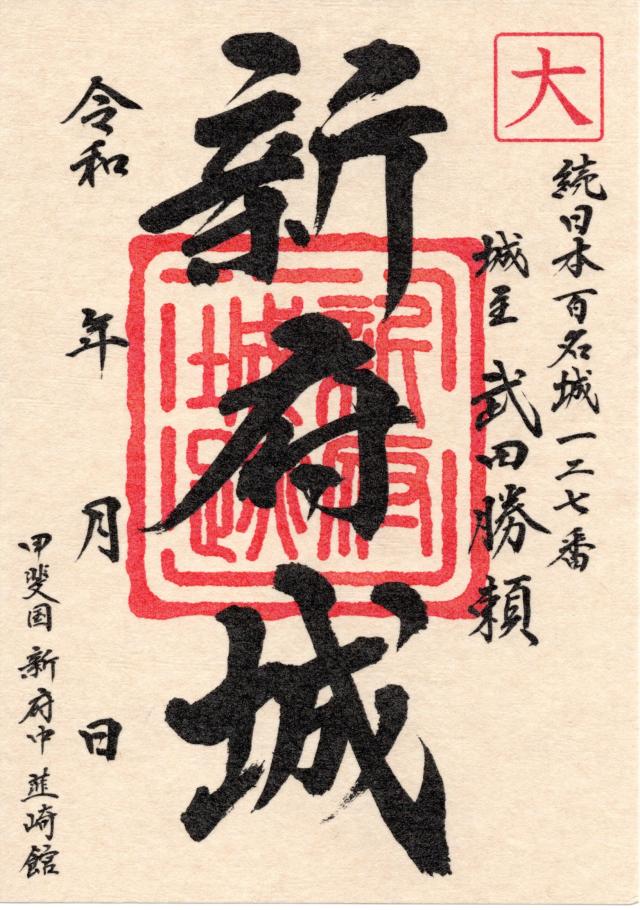 大
続日本百名城一二七番
城主 武田勝頼
新府城
新府城跡
令和 年 月 日
甲斐国 新府中 韮崎館